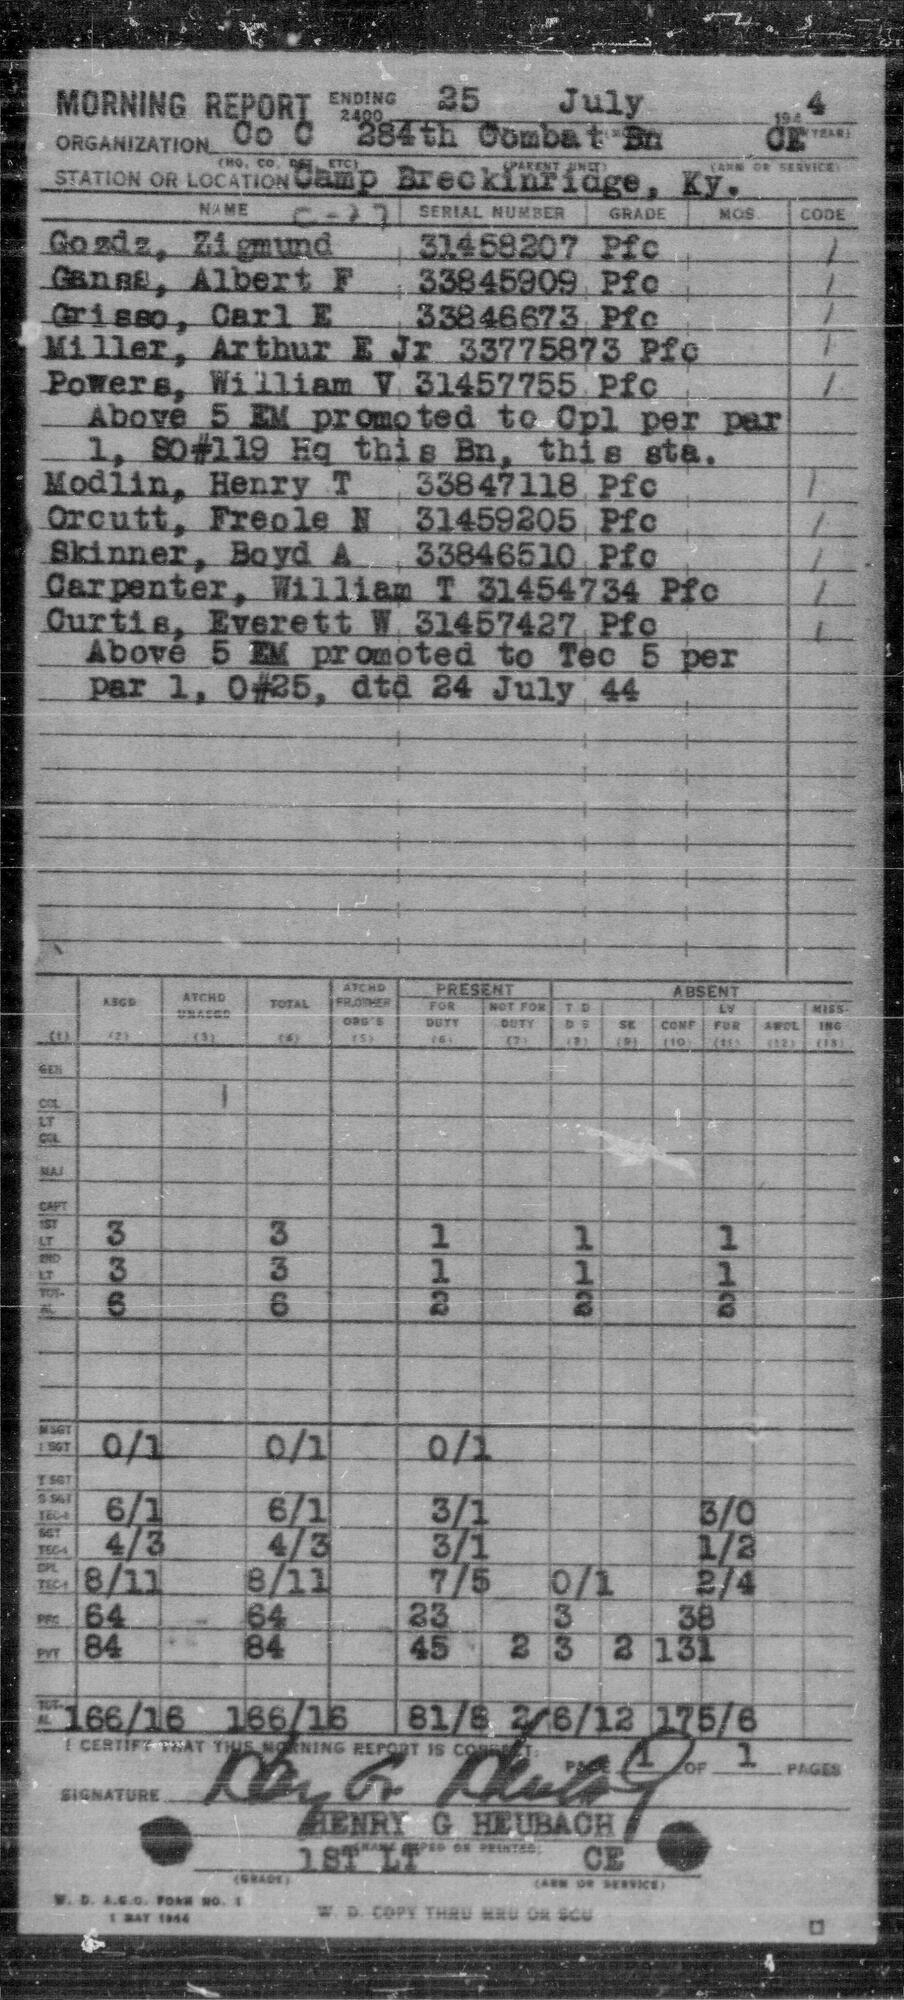 MORNING REPORT ENDING 2400 25 July 1944
ORGANIZATION Co C 284th Combat Bn CE
(HQ. CO. DET. ETC) (PARENT UNIT) (ARM OR SERVICE)
STATION OR LOCATION Camp Breckinridge, Ky.
NAME SERIAL NUMBER GRADE MOS CODE
Gozdz, Zigmund 31458207 Pfc /
Ganss, Albert F 33845909 Pfc /
Grisso, Carl E 33846673 Pfc /
Miller, Arthur E Jr 33775873 Pfc /
Powers, William V 31457755 Pfc /
Above 5 EM promoted to Cpl per par
1, SO#119 Hq this Bn, this sta.
Modlin, Henry T 33847118 Pfc /
Orcutt, Freole N 31459205 Pfc /
Skinner, Boyd A 33846510 Pfc /
Carpenter, William T 31454734 Pfc /
Curtis, Everett W 31457427 Pfc /
Above 5 EM promoted to Tec 5 per
par 1, O#25, dtd 24 July 44
PRESENT ABSENT
(1) ASGD (2) ATCHD UNASGD (3) TOTAL (4) ATCHD FR OTHER ORG'S (5) FOR DUTY (6) NOT FOR DUTY (7) T D D S (8) SK (9) CONF (10) LV FUR (11) AWOL (12) MISSING (13)
GEN
COL
LT COL
MAJ
CAPT
1ST LT 3 3 1 1 1
2ND LT 3 3 1 1 1
TOTAL 6 6 2 2 2
M SGT 1 SGT 0/1 0/1 0/1
T SGT
S SGT TEC-3 6/1 6/1 3/1 3/0
SGT TEC-4 4/3 4/3 3/1 1/2
CPL TEC-5 8/11 8/11 7/5 0/1 2/4
PFC 64 64 23 3 38
PVT 84 84 45 2 3 2 1 31
TOTAL 166/16 166/16 81/8 2 6/1 2 1 75/6
I CERTIFY THAT THIS MORNING REPORT IS CORRECT. PAGE 1 OF 1 PAGES
SIGNATURE Henry G Heubach
HENRY G HEUBACH
(NAME TYPED OR PRINTED)
1ST LT CE
(GRADE) (ARM OR SERVICE)
W. D. A.G.O. FORM NO. 1
1 MAY 1944
W. D. COPY THRU MRU OR SCU